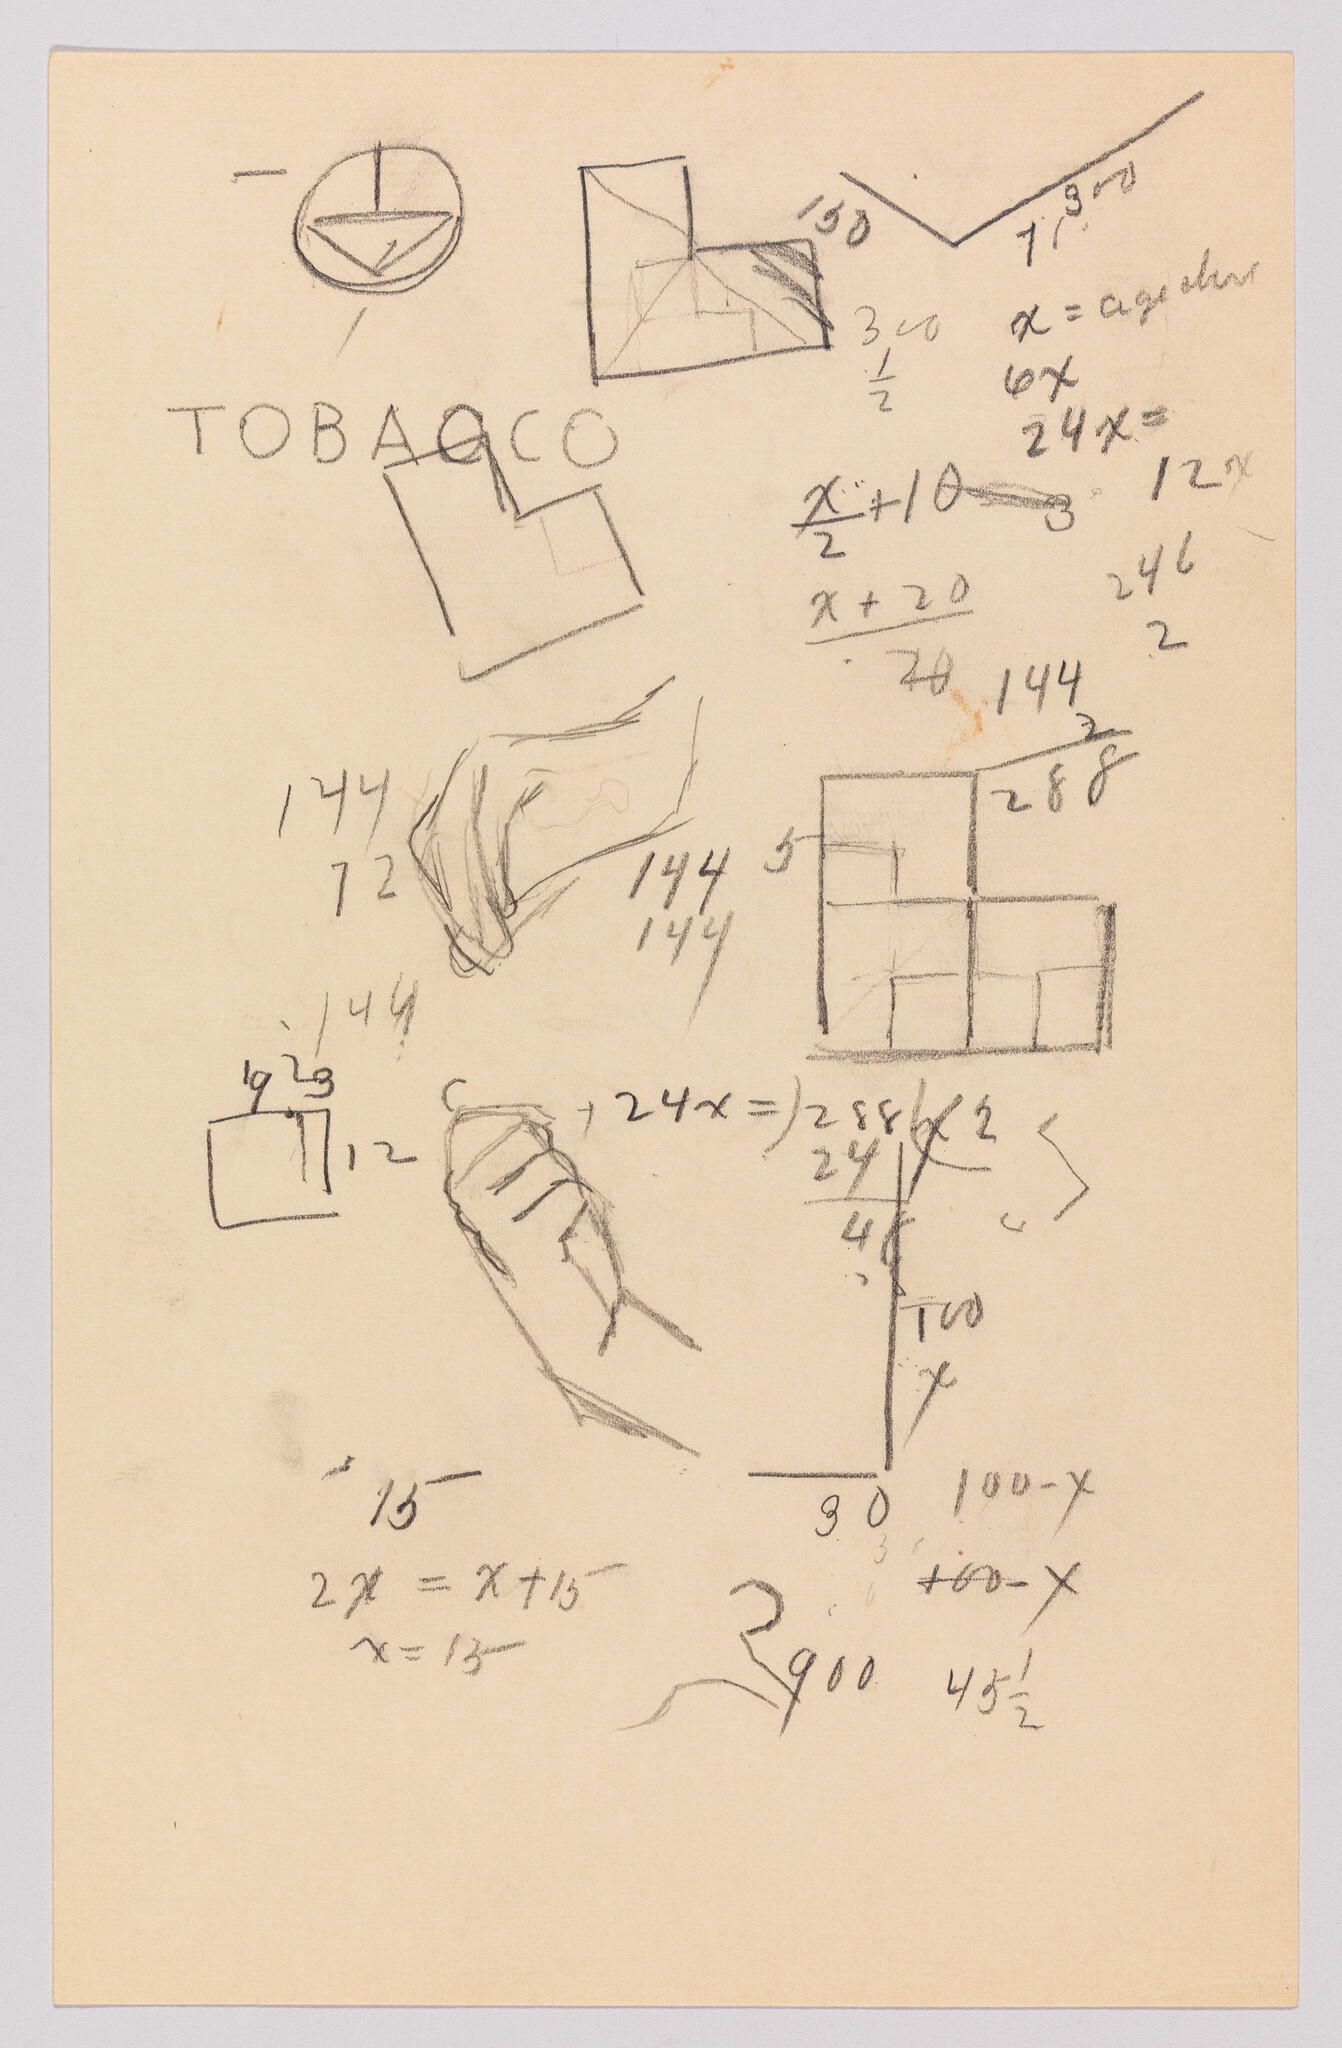 150
300
x =
6x
300
1/2
24x =
TOBACCO
12x
x/2 + 10
3
246
x + 20
2
20
144
2
288
144
72
5
144
144
144
9 2 3
12
24x = ) 288 ( x 2
24
48
100
x
15
30
100 - x
2x = x + 15
100 - x
x = 15
900
45 1/2